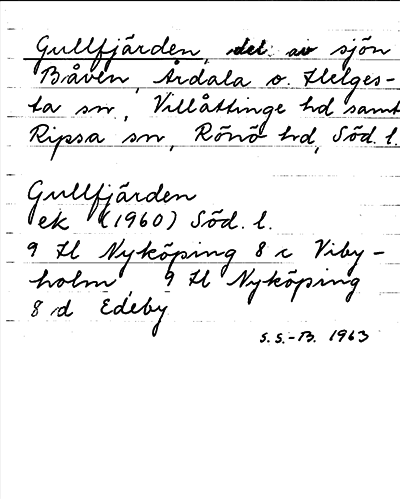 Gullfjärden, del av sjön
Båven, Årdala o. Helges-
ta sn, Villåttinge hd samt
Ripsa sn, Rönö hd, Söd. l.
Gullfjärden
ek (1960) Söd. l.
9 H Nyköping 8 c Viby-
holm, 9 H Nyköping
8 d Edeby
S.S.-B. 1963